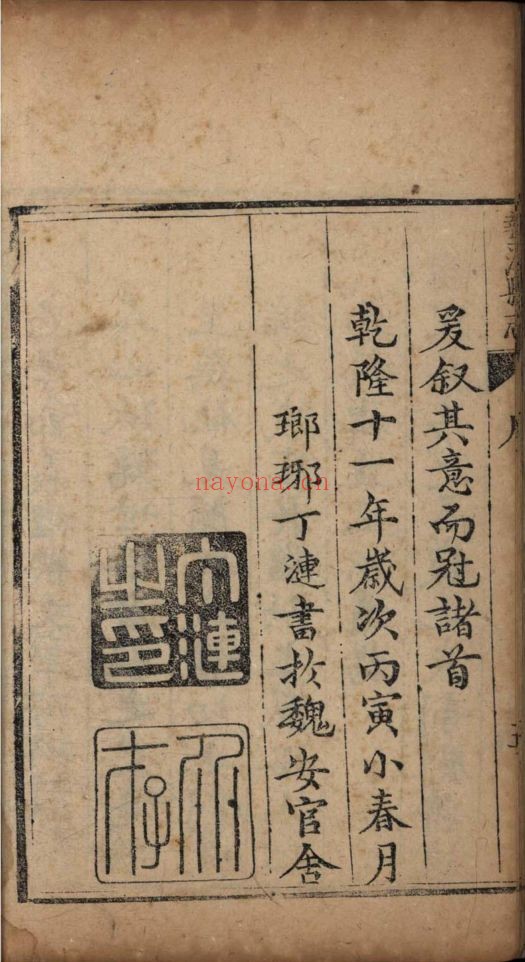 爰叙其意而冠諸首
乾隆十一年歲次丙寅小春月
瑯琊丁漣書於魏安官舍
丁漣
之印
nayona.cn